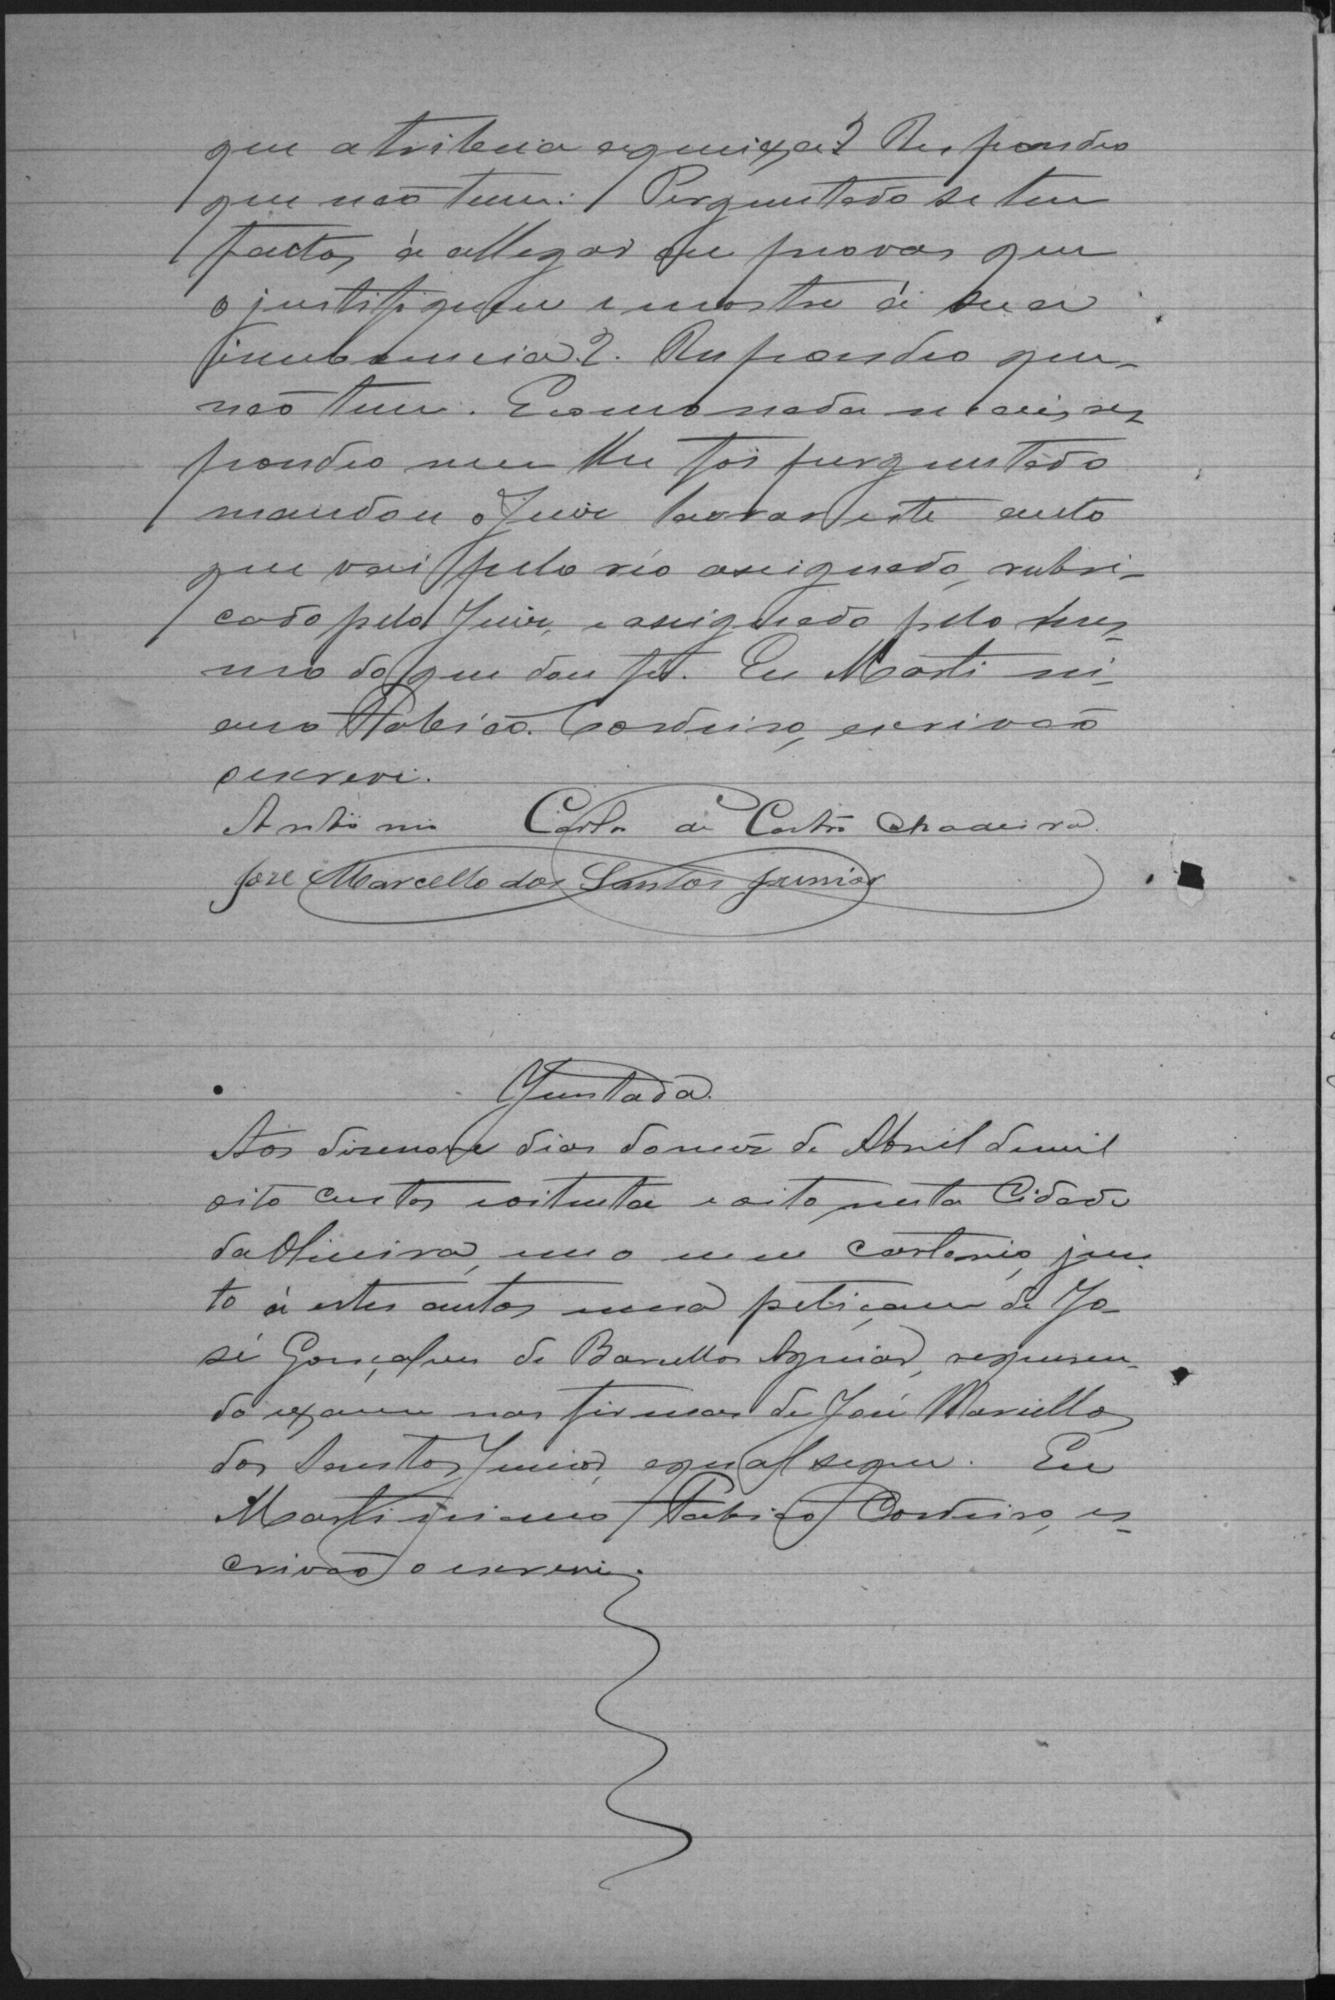 que atribua a queixa? Respondeo
que não tem. Perguntado se tem
factos á allegar ou provas que
o justifiquem e mostre á sua
innocencia?. Respondeo que
não tem. E como nada mais res
pondeo nem lhe foi perguntado
mandou o Juiz lavrar este auto
que vai pelo réo assignado, rubri-
cado pelo Juiz, e assignado pelo mes-
mo do que dou fé. Eu Martini-
ano Cordeiro, escrivão
o escrevi.
Antonio Carlos de Castro Madeira.
José Marcello dos Santos Junior
Juntada.
Aos disenove dias do mez de Abril de mil
oito centos e oitenta e oito, nesta Cidade
da Oliveira, em o meu cartorio, jun-
to á estes autos uma petiçam de Jo-
sé Gonçalves de Barcellos Aguiar, requeren-
do exame nas firmas de José Marcello
dos Santos Junior, e qual segue. Eu
Martiniano Cordeiro, es-
crivão o escrevi.